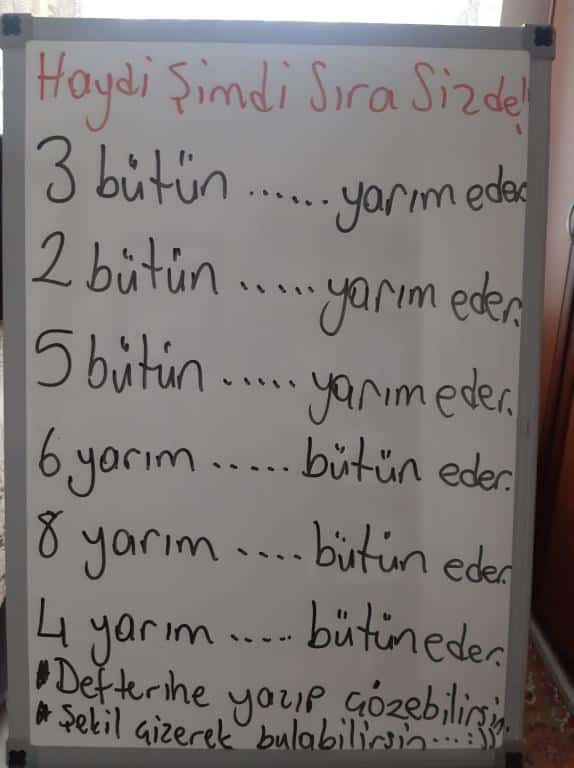 Haydi Şimdi Sıra Sizde!
3 bütün ...... yarım eder.
2 bütün ..... yarım eder.
5 bütün ..... yarım eder.
6 yarım ..... bütün eder.
8 yarım .... bütün eder.
4 yarım ..... bütün eder.
* Defterine yazıp çözebilirsin.
* Şekil çizerek bulabilirsin...:))